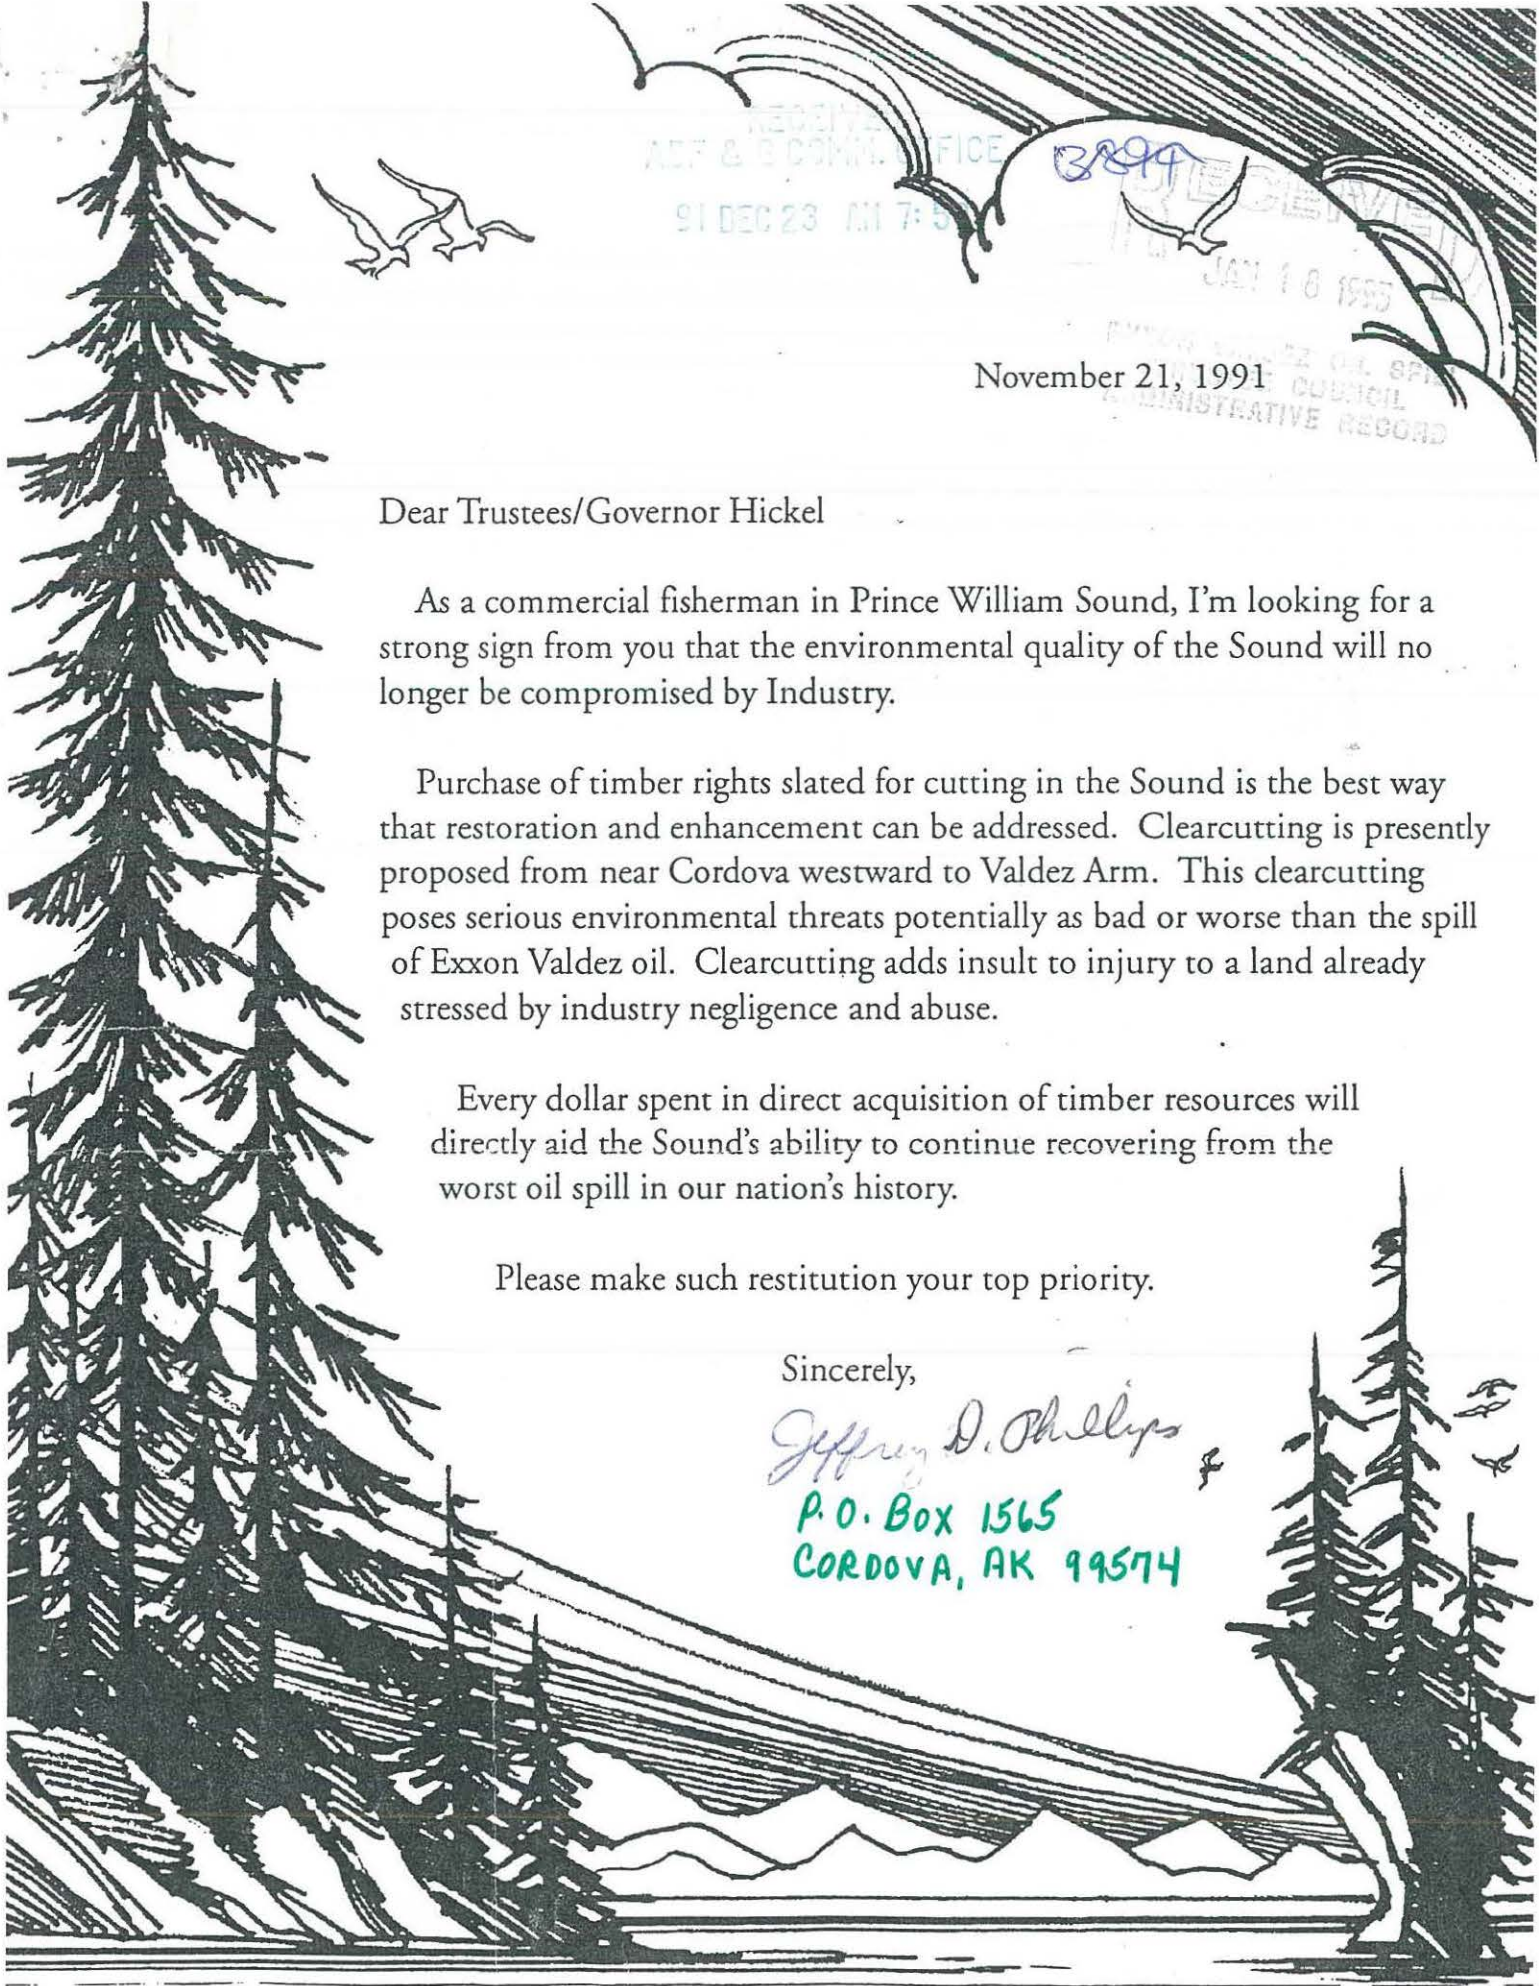 RECEIVE
ADF & G COMM. OFFICE
91 DEC 23 AM 7: 5
RECEIVED
JAN 18
EXXON VALDEZ OIL SPILL
COUNCIL
ADMINISTRATIVE RECORD
November 21, 1991
Dear Trustees/Governor Hickel
As a commercial fisherman in Prince William Sound, I'm looking for a
strong sign from you that the environmental quality of the Sound will no
longer be compromised by Industry.
Purchase of timber rights slated for cutting in the Sound is the best way
that restoration and enhancement can be addressed. Clearcutting is presently
proposed from near Cordova westward to Valdez Arm. This clearcutting
poses serious environmental threats potentially as bad or worse than the spill
of Exxon Valdez oil. Clearcutting adds insult to injury to a land already
stressed by industry negligence and abuse.
Every dollar spent in direct acquisition of timber resources will
directly aid the Sound's ability to continue recovering from the
worst oil spill in our nation's history.
Please make such restitution your top priority.
Sincerely,
Jeffrey D. Phillips
P.O. BOX 1565
CORDOVA, AK 99574